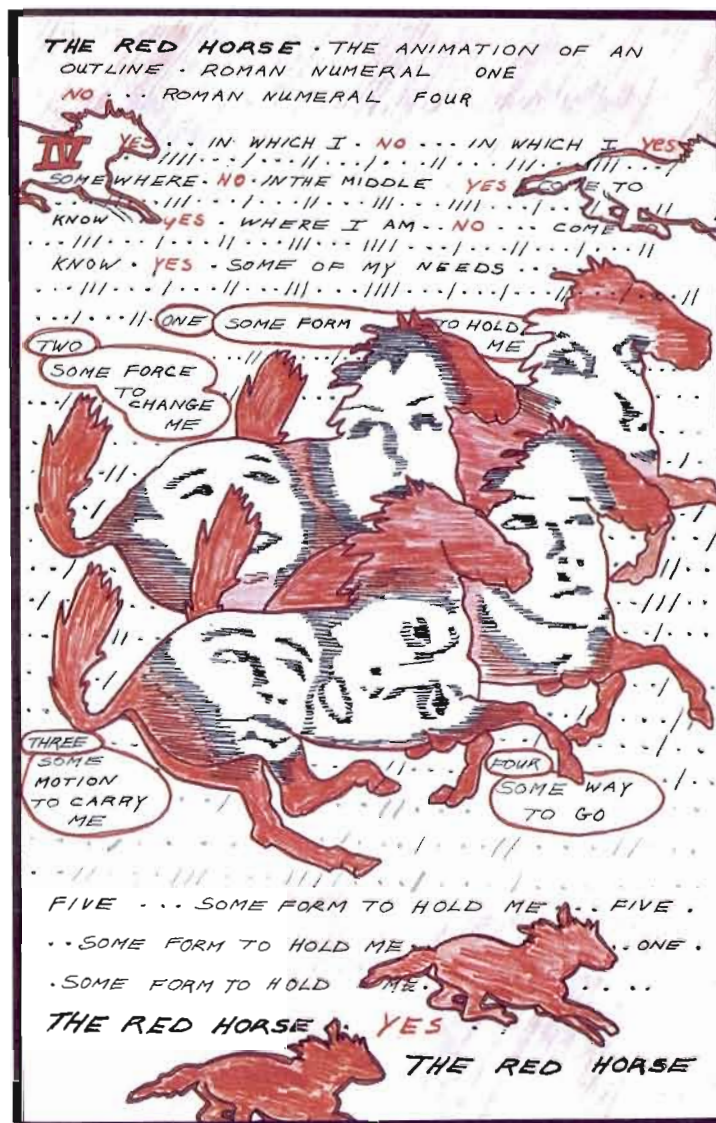 THE RED HORSE · THE ANIMATION OF AN
OUTLINE · ROMAN NUMERAL ONE
NO · · · ROMAN NUMERAL FOUR
IV YES · · · IN WHICH I · NO · · · IN WHICH I YES
SOMEWHERE · NO · IN THE MIDDLE YES COME TO
KNOW YES · WHERE I AM · · NO · · · COME
KNOW · YES · SOME OF MY NEEDS · · ·
ONE SOME FORM TO HOLD
ME
TWO
SOME FORCE
TO
CHANGE
ME
THREE
SOME
MOTION
TO CARRY
ME
FOUR
SOME WAY
TO GO
FIVE · · · SOME FORM TO HOLD ME · · · FIVE ·
· · SOME FORM TO HOLD ME · · · ONE ·
· SOME FORM TO HOLD ME · · · · ·
THE RED HORSE · YES · ·
THE RED HORSE